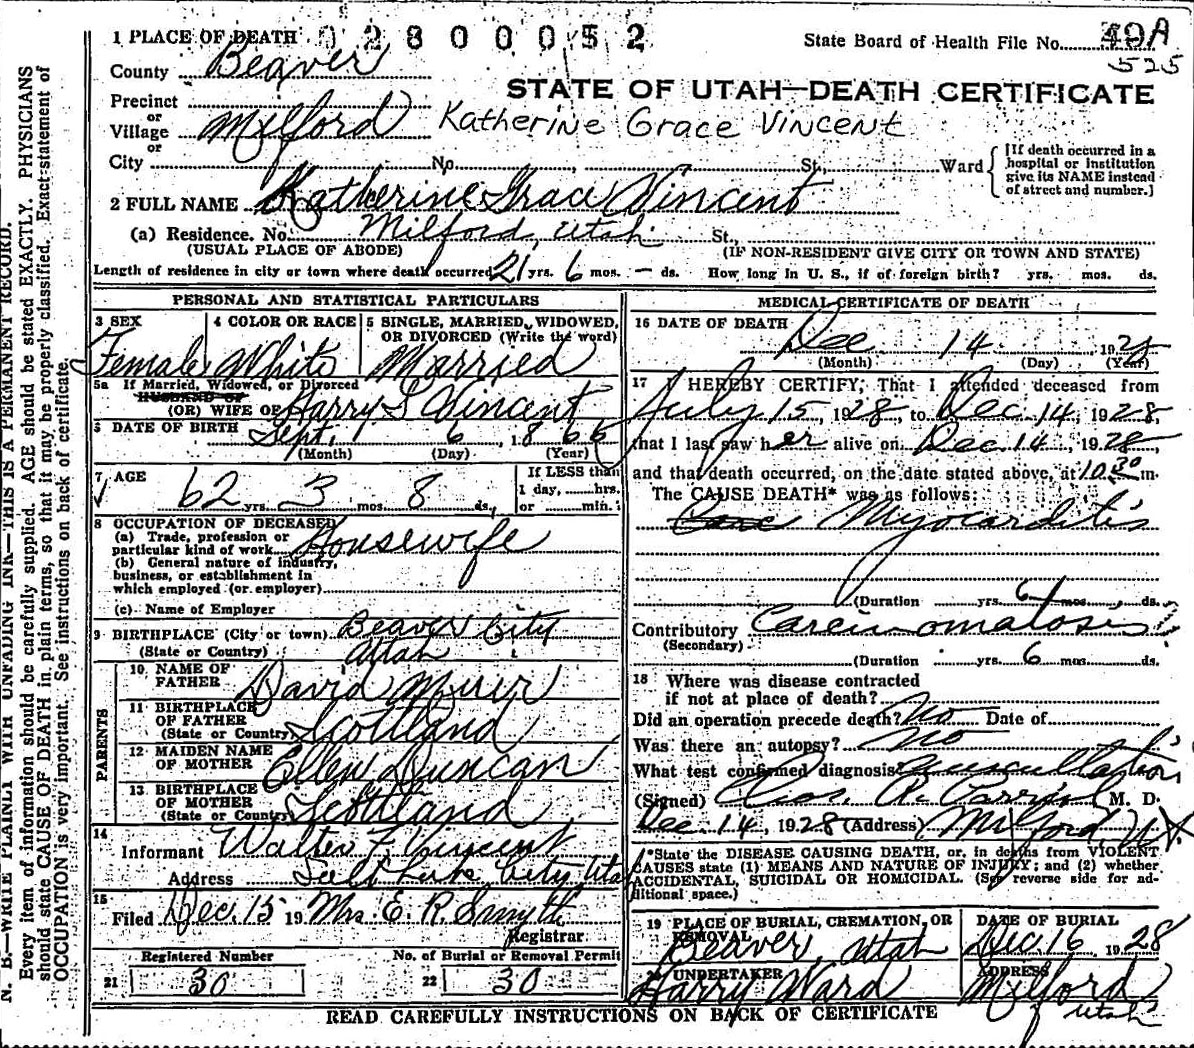 1 PLACE OF DEATH 02800052
State Board of Health File No. 49A
525
County Beaver
STATE OF UTAH—DEATH CERTIFICATE
Precinct
or
Village Milford
Katherine Grace Vincent
or
City No. St., Ward
[If death occurred in a
hospital or institution
give its NAME instead
of street and number.]
2 FULL NAME Katherine Grace Vincent
(a) Residence. No. Milford, Utah St.,
(USUAL PLACE OF ABODE) (IF NON-RESIDENT GIVE CITY OR TOWN AND STATE)
Length of residence in city or town where death occurred 21 yrs. 6 mos. — ds. How long in U. S., if of foreign birth? yrs. mos. ds.
PERSONAL AND STATISTICAL PARTICULARS
3 SEX
Female
4 COLOR OR RACE
White
5 SINGLE, MARRIED, WIDOWED,
OR DIVORCED (Write the word)
Married
5a If Married, Widowed, or Divorced
HUSBAND OF
(OR) WIFE OF Harry S Vincent
6 DATE OF BIRTH Sept. 6, 1866
(Month) (Day) (Year)
7 AGE
62 yrs. 3 mos. 8 ds.
If LESS than
1 day, hrs.
or min.
8 OCCUPATION OF DECEASED
(a) Trade, profession or
particular kind of work Housewife
(b) General nature of industry,
business, or establishment in
which employed (or employer)
(c) Name of Employer
9 BIRTHPLACE (City or town) Beaver City
(State or Country) Utah
PARENTS
10 NAME OF
FATHER David Muir
11 BIRTHPLACE
OF FATHER
(State or Country) Scottland
12 MAIDEN NAME
OF MOTHER Ellen Duncan
13 BIRTHPLACE
OF MOTHER
(State or Country) Scottland
14
Informant Walter F. Vincent
Address Salt Lake City Utah
15
Filed Dec. 15 19 Mrs. E. R. Smyth
Registrar.
Registered Number
21 30
No. of Burial or Removal Permit
22 30
MEDICAL CERTIFICATE OF DEATH
16 DATE OF DEATH
Dec 14 1928
(Month) (Day) (Year)
17 I HEREBY CERTIFY, That I attended deceased from
July 15, 1928, to Dec. 14, 1928,
that I last saw her alive on Dec. 14, 1928,
and that death occurred, on the date stated above, at 10:30 m.
The CAUSE DEATH* was as follows:
Myocarditis
(Duration yrs. 6 mos. ds.
Contributory Carcinomatosis
(Secondary)
(Duration yrs. 6 mos. ds.
18 Where was disease contracted
if not at place of death?
Did an operation precede death? No Date of
Was there an autopsy? No
What test confirmed diagnosis? Auscultation
(Signed) M. D.
Dec. 14, 1928 (Address) Milford Ut
*State the DISEASE CAUSING DEATH, or, in deaths from VIOLENT
CAUSES state (1) MEANS AND NATURE OF INJURY; and (2) whether
ACCIDENTAL, SUICIDAL OR HOMICIDAL. (See reverse side for ad-
ditional space.)
19 PLACE OF BURIAL, CREMATION, OR
REMOVAL
Beaver, Utah
DATE OF BURIAL
Dec. 16 1928
20 UNDERTAKER
Harry Ward
ADDRESS
Milford
Utah
READ CAREFULLY INSTRUCTIONS ON BACK OF CERTIFICATE
N. B.—WRITE PLAINLY WITH UNFADING INK—THIS IS A PERMANENT RECORD.
Every item of information should be carefully supplied. AGE should be stated EXACTLY. PHYSICIANS
should state CAUSE OF DEATH in plain terms, so that it may be properly classified. Exact statement of
OCCUPATION is very important. See instructions on back of certificate.